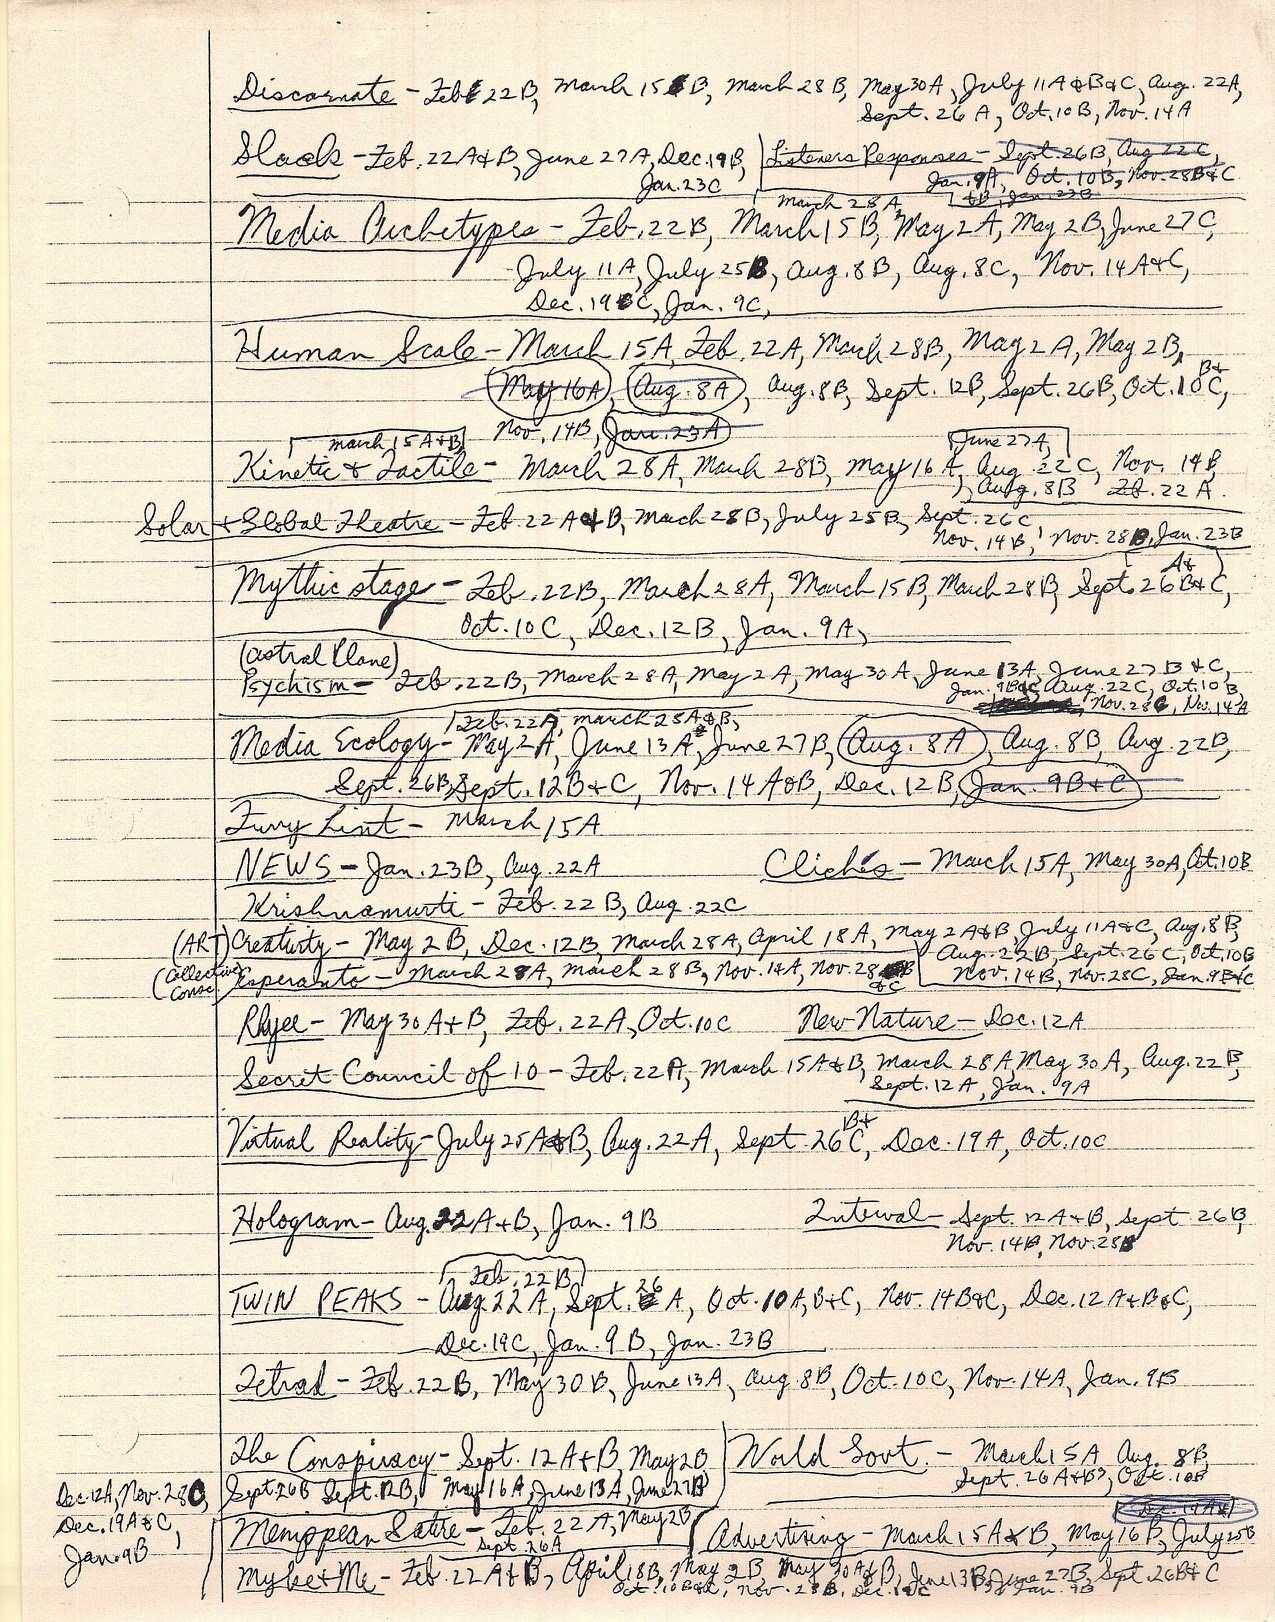 Discarnate - Feb 22B, March 15B, March 28B, May 30A, July 11A&B&C, Aug. 22A,
Sept. 26A, Oct. 10B, Nov. 14A
Slack - Feb. 22A&B, June 27A, Dec. 19B, Listeners Responses - Sept. 26B, Aug 22C,
Jan. 23C Jan. 9A, Oct. 10B, Nov. 28B&C
March 28A, &B, Jan. 23B
Media Archetypes - Feb. 22B, March 15B, May 2A, May 2B, June 27C,
July 11A, July 25B, Aug. 8B, Aug. 8C, Nov. 14A&C,
Dec. 19C, Jan. 9C,
Human Scale - March 15A, Feb. 22A, March 28B, May 2A, May 2B,
May 16A, Aug. 8A, Aug. 8B, Sept. 12B, Sept. 26B, Oct. 10 B& C,
Nov. 14B, Jan. 23A
March 15A&B June 27A,
Kinetic & Tactile - March 28A, March 28B, May 16A, Aug. 22C, Nov. 14B,
Aug. 8B Feb. 22A.
Solar + Global Theatre - Feb. 22A&B, March 28B, July 25B, Sept. 26C,
Nov. 14B, Nov. 28B, Jan. 23B
A&
Mythic stage - Feb. 22B, March 28A, March 15B, March 28B, Sept. 26B&C,
Oct. 10C, Dec. 12B, Jan. 9A,
(astral Plane)
Psychism - Feb. 22B, March 28A, May 2A, May 30A, June 13A, June 27B&C,
Jan. 9B&C, Aug. 22C, Oct. 10B,
Nov. 28C, Nov. 14A
Feb. 22A, March 28A&B,
Media Ecology - May 2A, June 13A, June 27B, Aug. 8A, Aug. 8B, Aug. 22B,
Sept. 26B, Sept. 12B&C, Nov. 14A&B, Dec. 12B, Jan. 9B&C
Furry Lint - March 15A
NEWS - Jan. 23B, Aug. 22A Clichés - March 15A, May 30A, Oct. 10B
Krishnamurti - Feb. 22B, Aug. 22C
(ART) Creativity - May 2B, Dec. 12B, March 28A, April 18A, May 2A&B, July 11A&C, Aug. 8B,
Aug. 22B, Sept. 26C, Oct. 10B
(Collective Consc.) Esperanto - March 28A, March 28B, Nov. 14A, Nov. 28B &C Nov. 14B, Nov. 28C, Jan. 9B&C
Rhyee - May 30A&B, Feb. 22A, Oct. 10C New Nature - Dec. 12A
Secret Council of 10 - Feb. 22A, March 15A&B, March 28A, May 30A, Aug. 22B,
Sept. 12A, Jan. 9A
Virtual Reality - July 25A&B, Aug. 22A, Sept. 26 B& C, Dec. 19A, Oct. 10C
Hologram - Aug. 22A&B, Jan. 9B Interval - Sept. 12A&B, Sept. 26B,
Nov. 14B, Nov. 28B
Feb. 22B
TWIN PEAKS - Aug. 22A, Sept. 26A, Oct. 10A, B&C, Nov. 14B&C, Dec. 12A&B&C,
Dec. 19C, Jan. 9B, Jan. 23B
Tetrad - Feb. 22B, May 30B, June 13A, Aug 8B, Oct. 10C, Nov. 14A, Jan. 9B
The Conspiracy - Sept. 12A&B, May 2B World Govt. - March 15A Aug. 8B,
Sept. 26A&B, Oct. 10B
Dec. 12A, Nov. 28C, Sept 26B Sept. 12B, May 16A, June 13A, June 27B
Dec. 19A&C,
Jan. 9B
Menippean Satire - Feb. 22A, May 2B, Advertising - March 15A&B, May 16B, July 25B
Sept. 26A
Myke & Me - Feb. 22A&B, April 18B, May 2B, May 30A&B, June 13B, June 27B, Sept. 26B&C
Oct. 10B&C, Nov. 28B, Dec. 19C & Jan. 9B